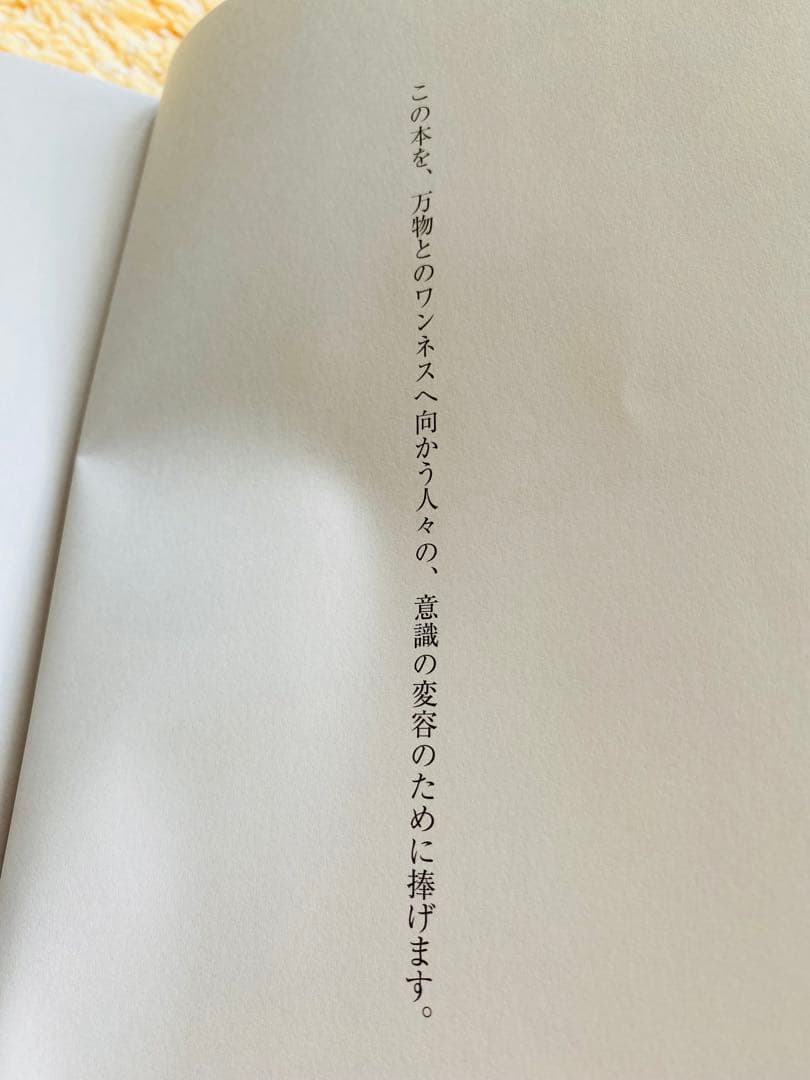 この本を、万物とのワンネスへ向かう人々の、意識の変容のために捧げます。